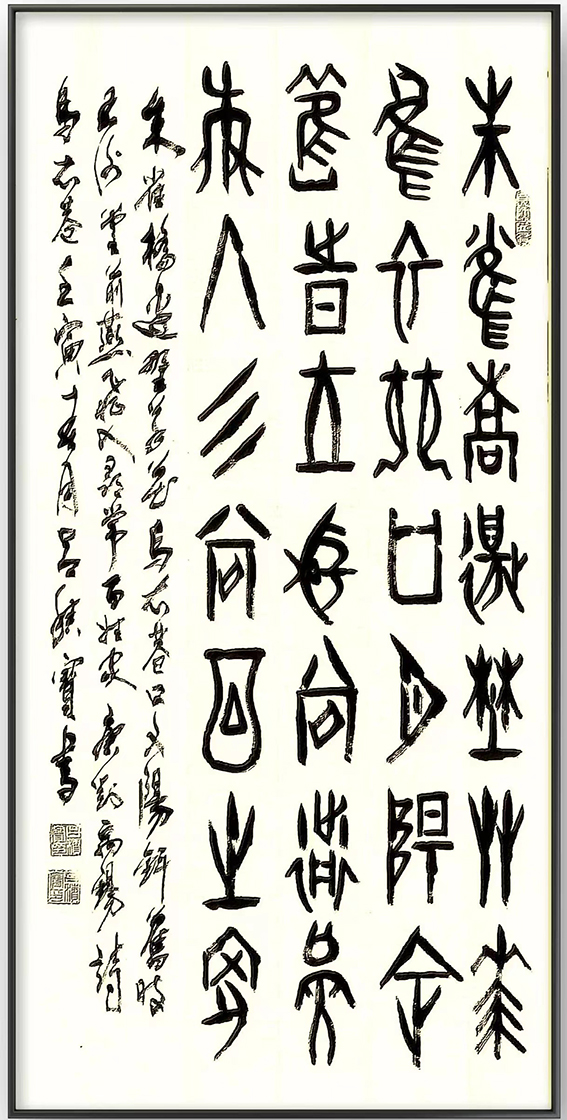 朱雀喬邊野艸華
烏衣巷口夕陽余
舊旹王射尚前燕
飛入尋尚百生家
朱雀橋邊野草花烏衣巷口夕陽斜舊時
王謝堂前燕飛入尋常百姓家唐劉禹錫詩
烏衣巷壬寅十月吉寶書